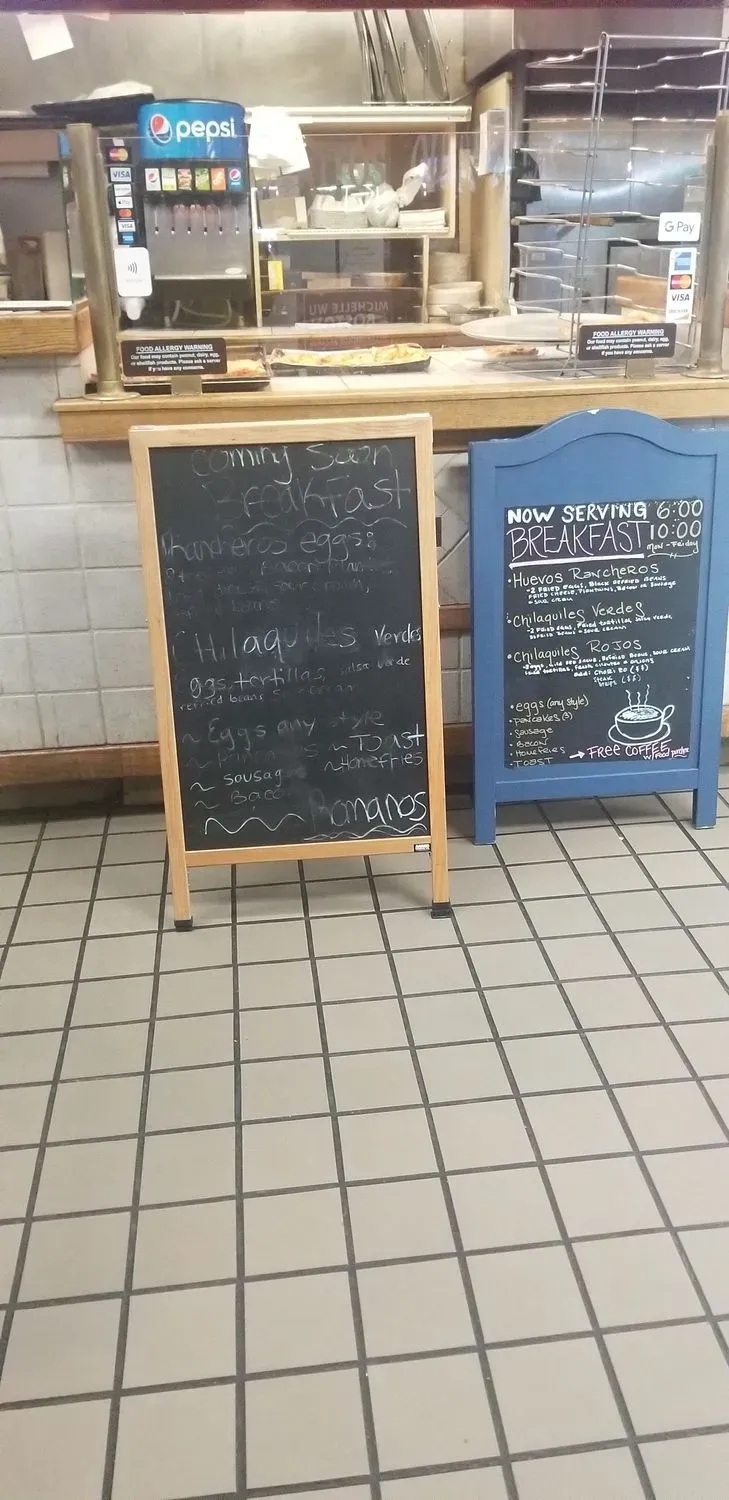 pepsi
VISA
Pay
VISA
G Pay
VISA
MICHELLE WU
BOSTON
FOOD ALLERGY WARNING
Our food may contain peanut, dairy, egg,
or shellfish products. Please ask a server
if you have any concerns.
FOOD ALLERGY WARNING
Our food may contain peanut, dairy, egg,
or shellfish products. Please ask a server
if you have any concerns.
Coming Soon
BreaKFast
Rhancheros eggs
CHilaquiles Verdes
ggs, tortillas, salsa verde
refried beans
~ Eggs any style
~ Toast
~ Homefries
~ sausag
~ Bacon
Romanos
NOW SERVING 6:00
BREAKFAST 10:00
Mon - Friday
• Huevos Rancheros
- 2 Fried eggs, Black Refried Beans
Fried cheese, Plantains, Bacon or Sausage
+ sour cream
• Chilaquiles Verdes
- 2 Fried eggs, Fried tortilla, salsa verde,
refried beans + sour cream
• Chilaquiles Rojos
add: Chorizo ($$)
steak
strips ($$)
• eggs (any style)
• pancakes (3)
• sausage
• Bacon
• Homefries
• TOAST
→ Free Coffee
w/ Food purchase